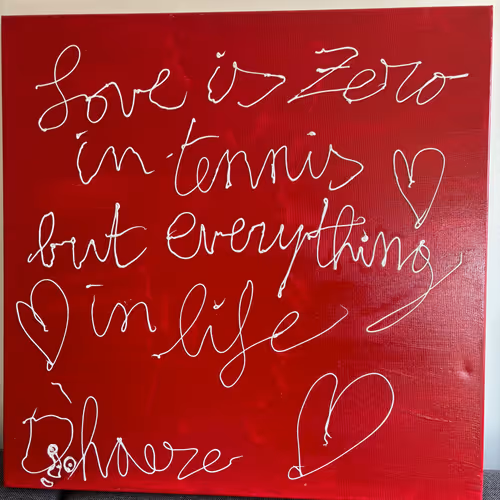 Love is Zero
in tennis
but everything
in life
Dhaere